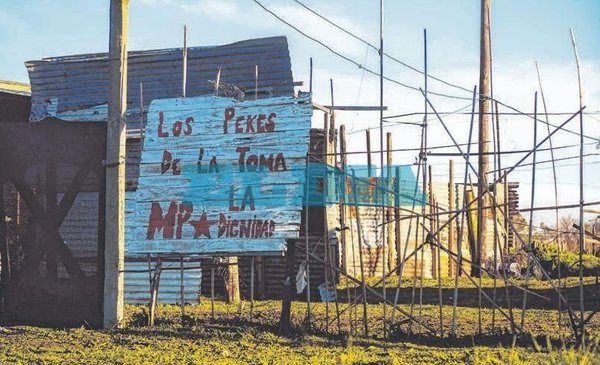 Los Pekes
De La Toma
La
MP★Dignidad